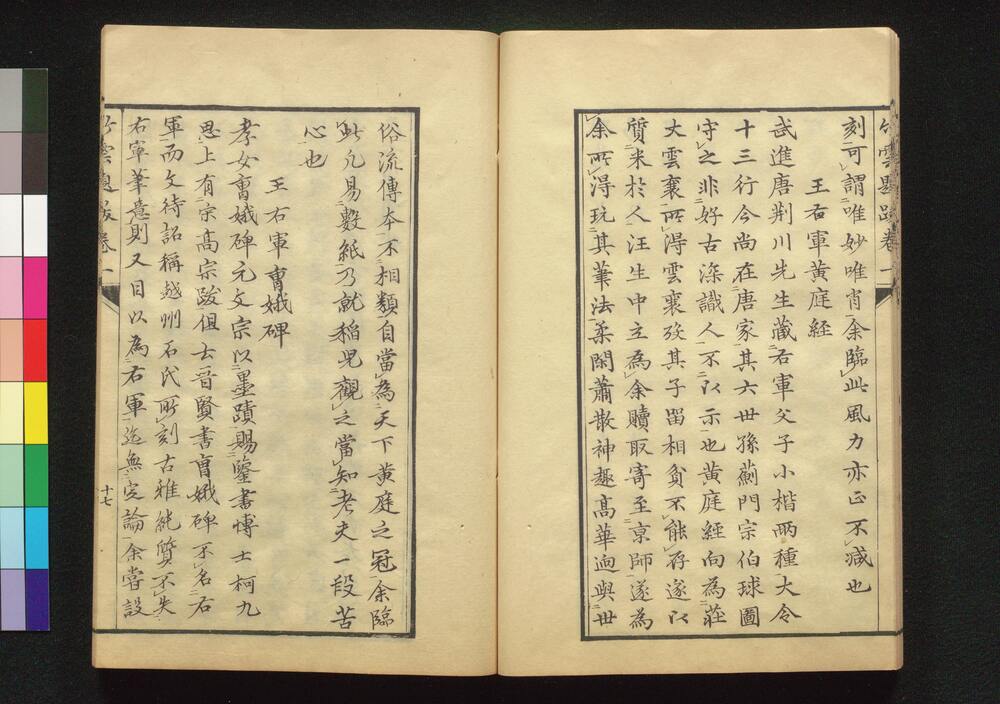 竹雲題跋卷一
刻可謂唯妙唯肖余臨此風力亦正不减也
王右軍黃庭經
武進唐荆川先生藏右軍父子小楷兩種大令
十三行今尚在唐家其六世孫薊門宗伯球圖
守之非好古深識人不以示也黃庭經向為莊
大雲襄所得雲襄歿其子留相貧不能存遂以
質米於人汪生中立為余贖取寄至京師遂為
余所得玩其筆法柔閑蕭散神趣高華迥與世
俗流傳本不相類自當為天下黃庭之冠余臨
此凡易數紙乃就稿兒觀之當知老夫一段苦
心也
王右軍曹娥碑
孝女曹娥碑元文宗以墨蹟賜鑒書博士柯九
思上有宗高宗跋但云晉賢書曹娥碑不名右
軍而文待詔稱越州石氏所刻古雅純質不失
右軍筆意則又目以為右軍迄無定論余嘗設
竹雲題跋卷一
十七